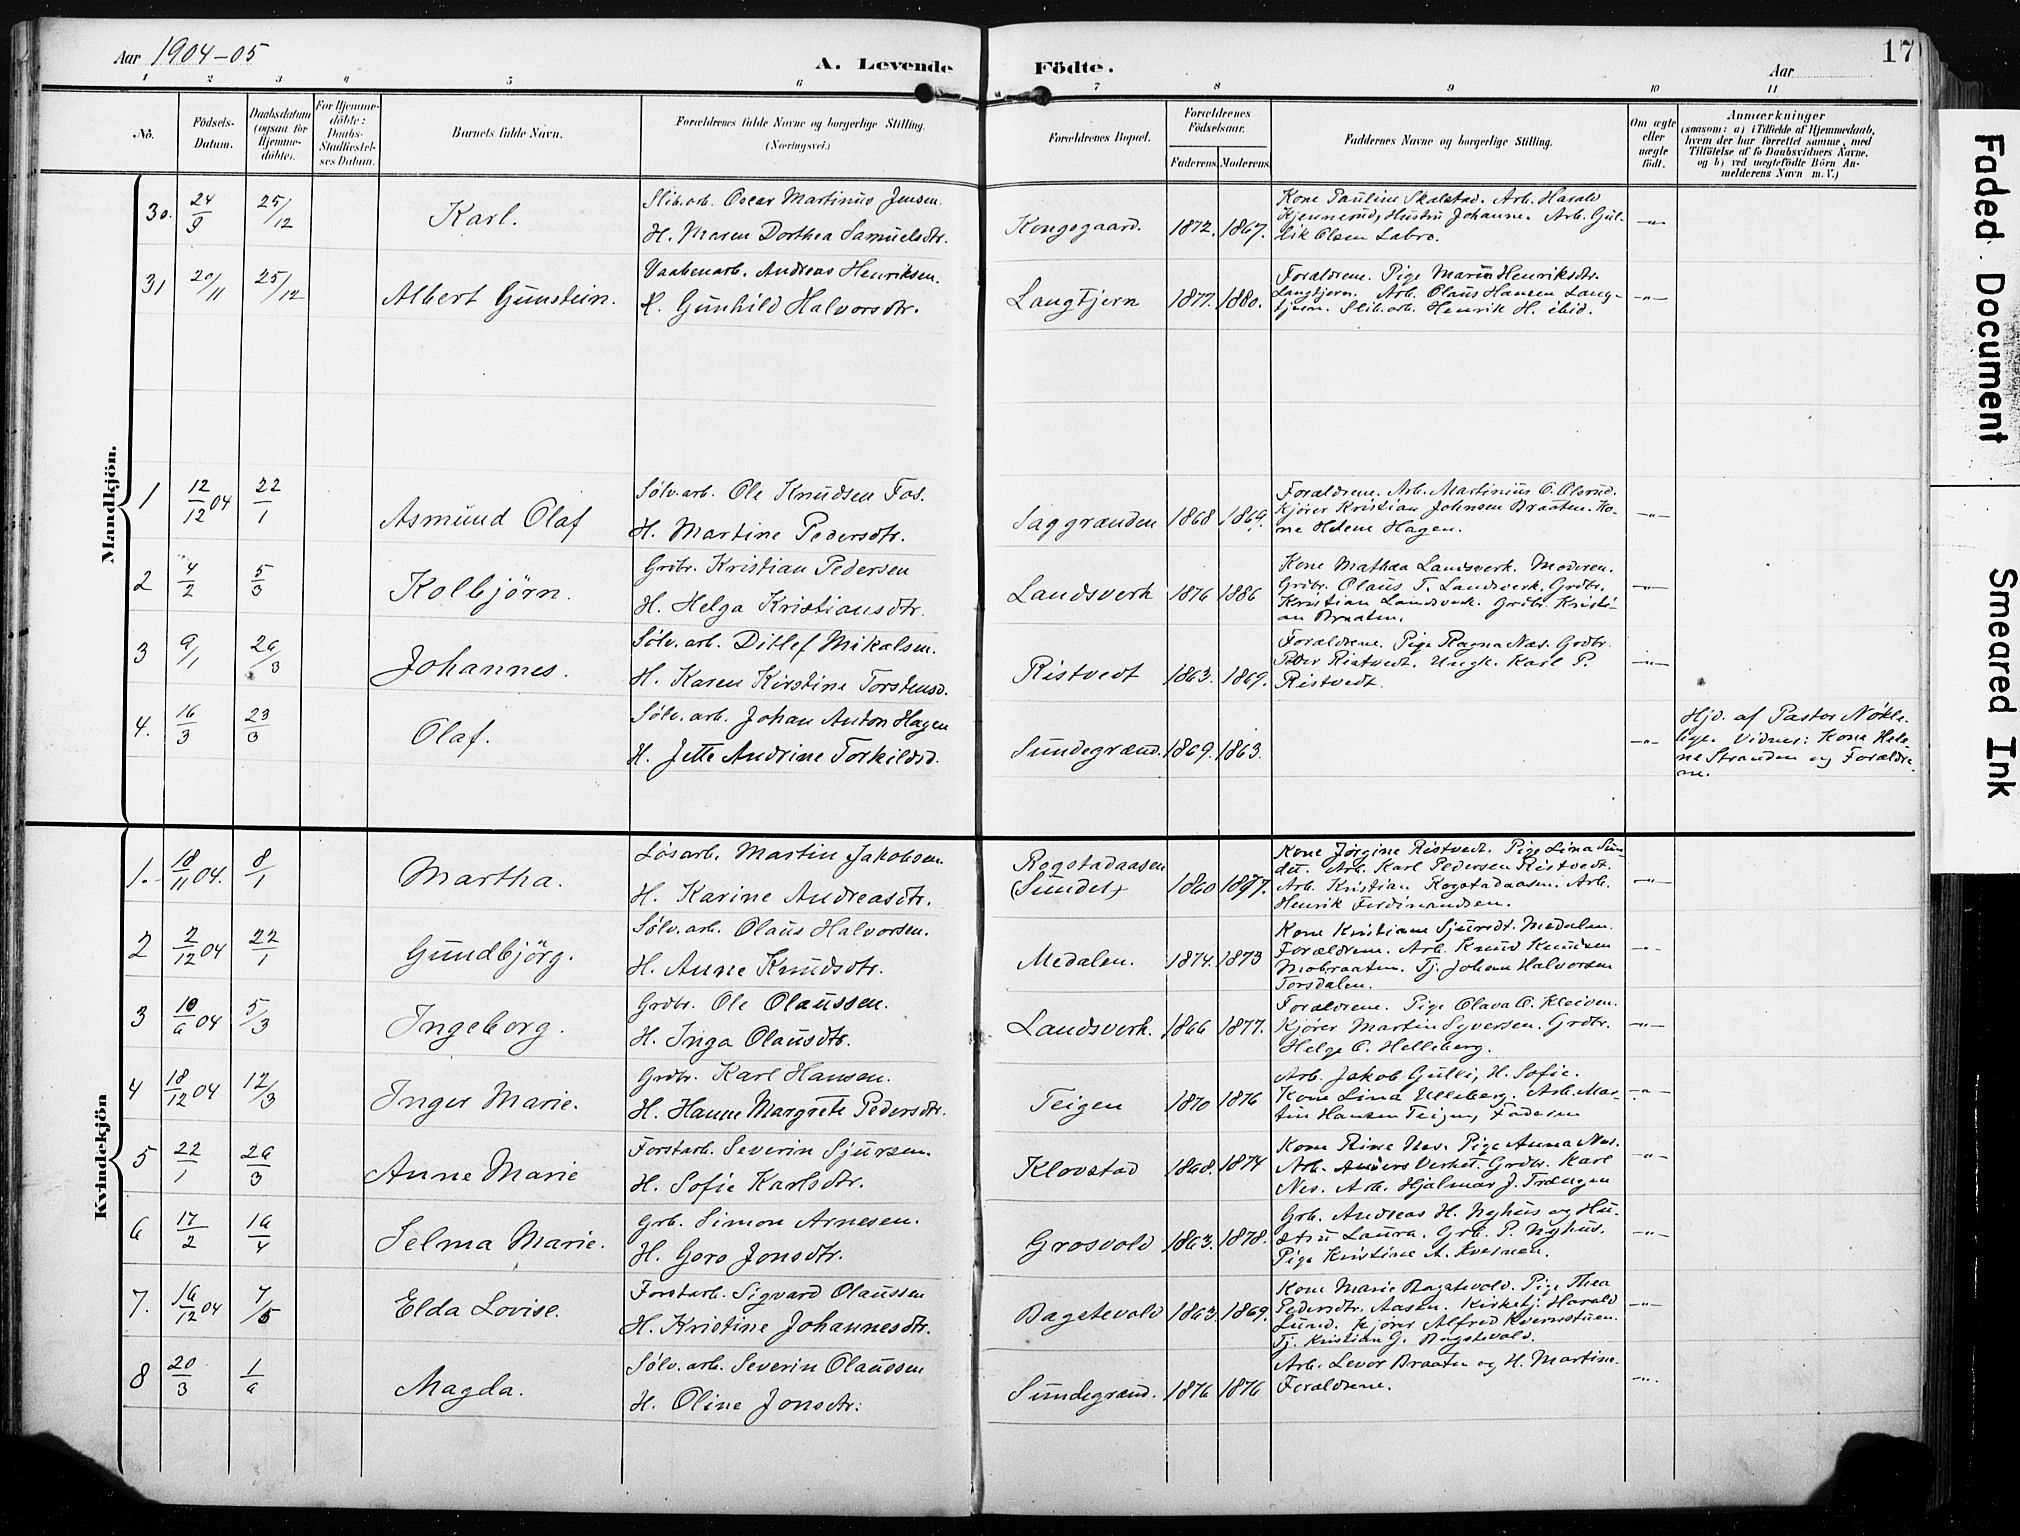 Aar 1904-05
A. Levende Födte.
Aar
17
1 2 3 4 5 6 7 8 9 10 11
No.
Födsels-Datum.
Daabsdatum (ogsaa for Hjemme-döbte).
For Hjemme-döbte: Daabs-Stadfæstel-ses Datum.
Barnets fulde Navn.
Forældrenes fulde Navne og borgerlige Stilling. (Næringsvei.)
Forældrenes Bopæl.
Forældrenes Födselsaar.
Faderens. Moderens.
Faddernes Navne og borgerlige Stilling.
Om ægte eller uægte födt.
Anmærkninger
(saasom: a) i Tilfælde af Hjemmedaab,
hvem der har forrettet samme, med
Tilföielse af to Daabsvidners Navne.
og b) ved uægtefödte Börn An-
melderens Navn m. V.)
Mandkjön.
30. 24/9 25/12 Karl.
Slib.arb. Oscar Martinus Jensen.
H. Maren Dorthea Samuelsdtr.
Kongsgaard. 1872. 1867.
Kone Pauline Skalstad. Arb. Harald
Kjennerud, Hustru Johanne. Arb. Gul-
lik Olsen Labro.
-"-
31 20/11 25/12 Albert Gunstein.
Vaabenarb. Andreas Henriksen.
H. Gunhild Halvorsdtr.
Langtjern 1877. 1880.
Forældrene. Pige Marin Henriksdtr.
Langtjern. Arb. Olaus Hansen Lang-
tjern. Slib.arb. Henrik H. ibid.
-"-
1 12/12 04 22/1 Asmund Olaf
Sølv.arb. Ole Knudsen Fos.
H. Martine Pedersdtr.
Saggrænden 1868 1869.
Forældrene. Arb. Martinius O. Olsrud.
Kjører Kristian Johnsen Braaten. Ko-
ne Helene Hagen.
-"-
2 4/2 5/3 Kolbjörn.
Grdbr. Kristian Pedersen
H. Helga Kristiansdtr.
Landsverk 1876 1886
Kone Mathea Landsverk. Moderen.
Grdbr. Olaus T. Landsverk. Grdbr.
Kristian Landsverk. Grdbr. Kristi-
an Braaten.
-"-
3 9/1 26/3 Johannes.
Sølv.arb. Ditlef Mikalsen.
H. Karen Kirstine Torstensd.
Ristvedt 1863. 1869.
Forældrene. Pige Ragna Næs. Grdbr.
Peder Ristvedt. Ungk. Karl P.
Ristvedt.
-"-
4. 16/3 23/3 Olaf.
Sølv.arb. Johan Anton Hagen
H. Jette Andrine Torkildsd.
Sundegrænd. 1869. 1863.
-"-
Hjd. af Pastor Nökle-
bye. Vidner: Kone Hele-
ne Stranden og Forældre-
ne.
Kvindekjön
1. 18/11 04. 8/1 Martha.
Løsarb. Martin Jakobsen.
H. Karine Andreasdtr.
Rogstadaasen
(Sundet) 1860 1867.
Kone Jørgine Ristvedt. Pige Lina Sun-
det. Arb. Karl Pedersen Ristvedt.
Arb. Kristian Rogstadaasen. Arb.
Henrik Ferdinandsen.
-"-
2 2/12 04 22/1 Gundbjörg.
Sølv.arb. Olaus Halvorsen.
H. Anne Knudsdtr.
Medalen. 1874. 1873
Kone Kristiane Sjursdt. Medalen.
Forældrene. Arb. Knud Knudsen
Mobraaten. Tj. Johan Halvorsen
Torsdalen.
-"-
3 10/6 04 5/3 Ingeborg.
Grdbr. Ole Olaussen.
H. Inga Olausdtr.
Landsverk. 1866 1877.
Forældrene. Pige Olava O. Kleiven.
Kjører Martin Syversen. Grdbr.
Helge O. Helleberg.
-"-
4 18/12 04 12/3 Inger Marie.
Grdbr. Karl Hansen.
H. Hanne Margrete Pedersdtr.
Teigen 1870 1876
Arb. Jakob Gulli, H. Sofie.
Kone Lina Ulleberg. Arb. Mar-
tin Hansen Teigen, Faderen
-"-
5 22/1 26/3 Anne Marie
Forstarb. Severin Sjursen.
H. Sofie Karlsdtr.
Klovstad 1868. 1874
Kone Rine Nes. Pige Anna Nes.
Arb. Anders Verket. Grdbr. Karl
Nes. Arb. Hjalmar J. Trængen
-"-
6 17/2 16/4 Selma Marie.
Grb. Simon Arnesen.
H. Goro Jonsdtr.
Grosvold 1863. 1878.
Grb. Andreas H. Nyhus og Hu-
stru Laura. Grb. P. Nyhus.
Pige Kristine A.
-"-
7. 16/12 04 7/5 Elda Lovise.
Forstarb. Sigvard Olaussen
H. Kristine Johannesdtr.
Bagstevold 1863. 1869.
Kone Marie Bagstevold. Pige Thea
Pedersdtr. Aasen. Kirketj. Harald
Lund. Kjører Alfred Kvernstuen.
Tj. Kristian G. Bagstevold.
-"-
8 20/3 1/6 Magda.
Sølv.arb. Severin Olaussen
H. Oline Jonsdtr:
Sundegrænd. 1876 1876
Arb. Levor Braaten og H. Martine.
Forældrene.
-"-
Faded Document
Smeared Ink